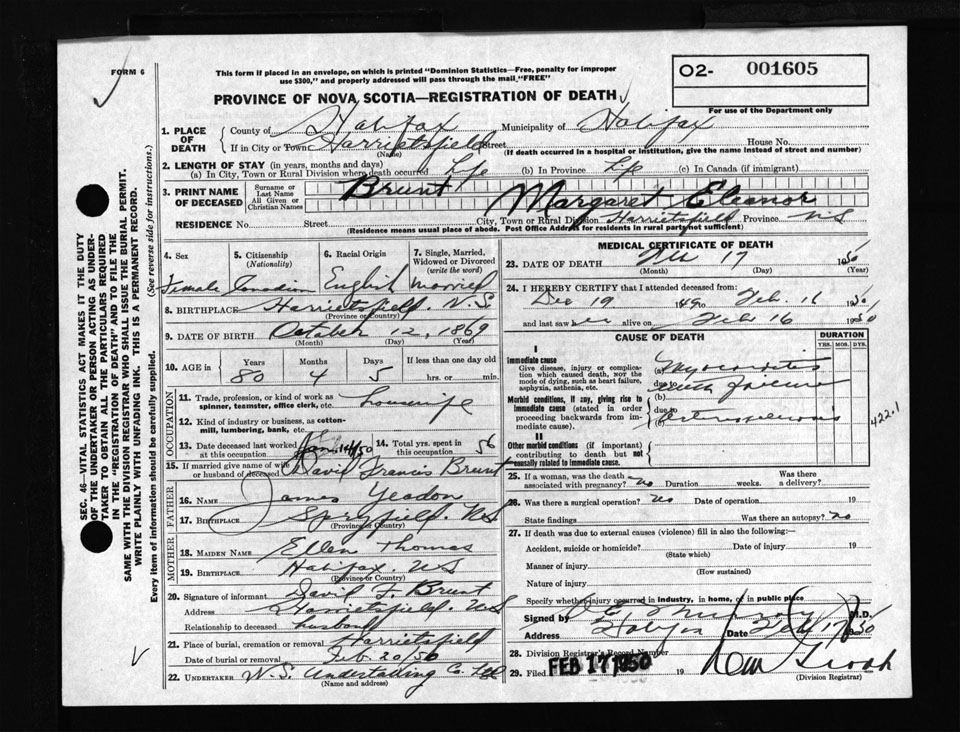 FORM 6
This form if placed in an envelope, on which is printed "Dominion Statistics—Free, penalty for improper
use $300," and properly addressed will pass through the mail "FREE"
O2- 001605
For use of the Department only
PROVINCE OF NOVA SCOTIA—REGISTRATION OF DEATH
1. PLACE OF DEATH
County of Halifax Municipality of Halifax
If in City or Town Harrietsfield Street House No.
(Name) (If death occurred in a hospital or institution, give the name instead of street and number)
2. LENGTH OF STAY (in years, months and days)
(a) In City, Town or Rural Division where death occurred Life (b) In Province Life (c) In Canada (if immigrant)
3. PRINT NAME OF DECEASED
Surname or Last Name Brunt
All Given or Christian Names Margaret Eleanor
RESIDENCE No. Street City, Town or Rural Division Harrietsfield Province N.S
(Residence means usual place of abode. Post Office Address for residents in rural parts not sufficient)
4. Sex Female
5. Citizenship (Nationality) Canadian
6. Racial Origin English
7. Single, Married, Widowed or Divorced (write the word) Married
8. BIRTHPLACE Harrietsfield N.S
(Province or Country)
9. DATE OF BIRTH October 12, 1869
(Month) (Day) (Year)
10. AGE in Years Months Days If less than one day old
80 4 5 hrs. or min.
OCCUPATION
11. Trade, profession or kind of work as spinner, teamster, office clerk, etc. housewife
12. Kind of industry or business, as cotton-mill, lumbering, bank, etc.
13. Date deceased last worked at this occupation Jan 14/50
14. Total yrs. spent in this occupation 56
15. If married give name of wife or husband of deceased David Francis Brunt
FATHER
16. Name James Yeadon
17. Birthplace Spryfield. N.S
(Province or Country)
MOTHER
18. Maiden Name Ellen Thomas
19. Birthplace Halifax. N.S
(Province or Country)
20. Signature of informant David F. Brunt
Address Harrietsfield. N.S
Relationship to deceased husband
21. Place of burial, cremation or removal Harrietsfield
Date of burial or removal Feb 20/50
22. Undertaker N.S. Undertaking Co. Ltd
(Name and address)
MEDICAL CERTIFICATE OF DEATH
23. DATE OF DEATH 17 1950
(Month) (Day) (Year)
24. I HEREBY CERTIFY that I attended deceased from:
Dec 19 1949 to Feb. 16 1950
and last saw her alive on Feb 16 1950
CAUSE OF DEATH
DURATION
YRS. MOS. DYS.
I
Immediate cause
Give disease, injury or complication which caused death, not the mode of dying, such as heart failure, asphyxia, asthenia, etc.
(a) Myocarditis
due to with failure
Morbid conditions, if any, giving rise to immediate cause (stated in order proceeding backwards from immediate cause).
(b)
due to
(c) Arteriosclerosis
422.1
II
Other morbid conditions (if important) contributing to death but not causally related to immediate cause.
25. If a woman, was the death associated with pregnancy? no Duration weeks. Was there a delivery?
26. Was there a surgical operation? no Date of operation 19
State findings Was there an autopsy? no
27. If death was due to external causes (violence) fill in also the following:—
Accident, suicide or homicide? Date of injury 19
(State which)
Manner of injury
(How sustained)
Nature of injury
Specify whether injury occurred in industry, in home, or in public place
Signed by M.D.
Address Halifax Date Feb 17 1950
28. Division Registrar's Record Number
29. Filed FEB 17 1950 19
(Division Registrar)
SEC. 46—VITAL STATISTICS ACT MAKES IT THE DUTY
OF THE UNDERTAKER OR PERSON ACTING AS UNDER-
TAKER TO OBTAIN ALL THE PARTICULARS REQUIRED
IN THE "REGISTRATION OF DEATH" AND TO FILE THE
SAME WITH THE DIVISION REGISTRAR WHO SHALL ISSUE THE BURIAL PERMIT.
WRITE PLAINLY WITH UNFADING INK. THIS IS A PERMANENT RECORD.
Every item of information should be carefully supplied. (See reverse side for instructions.)